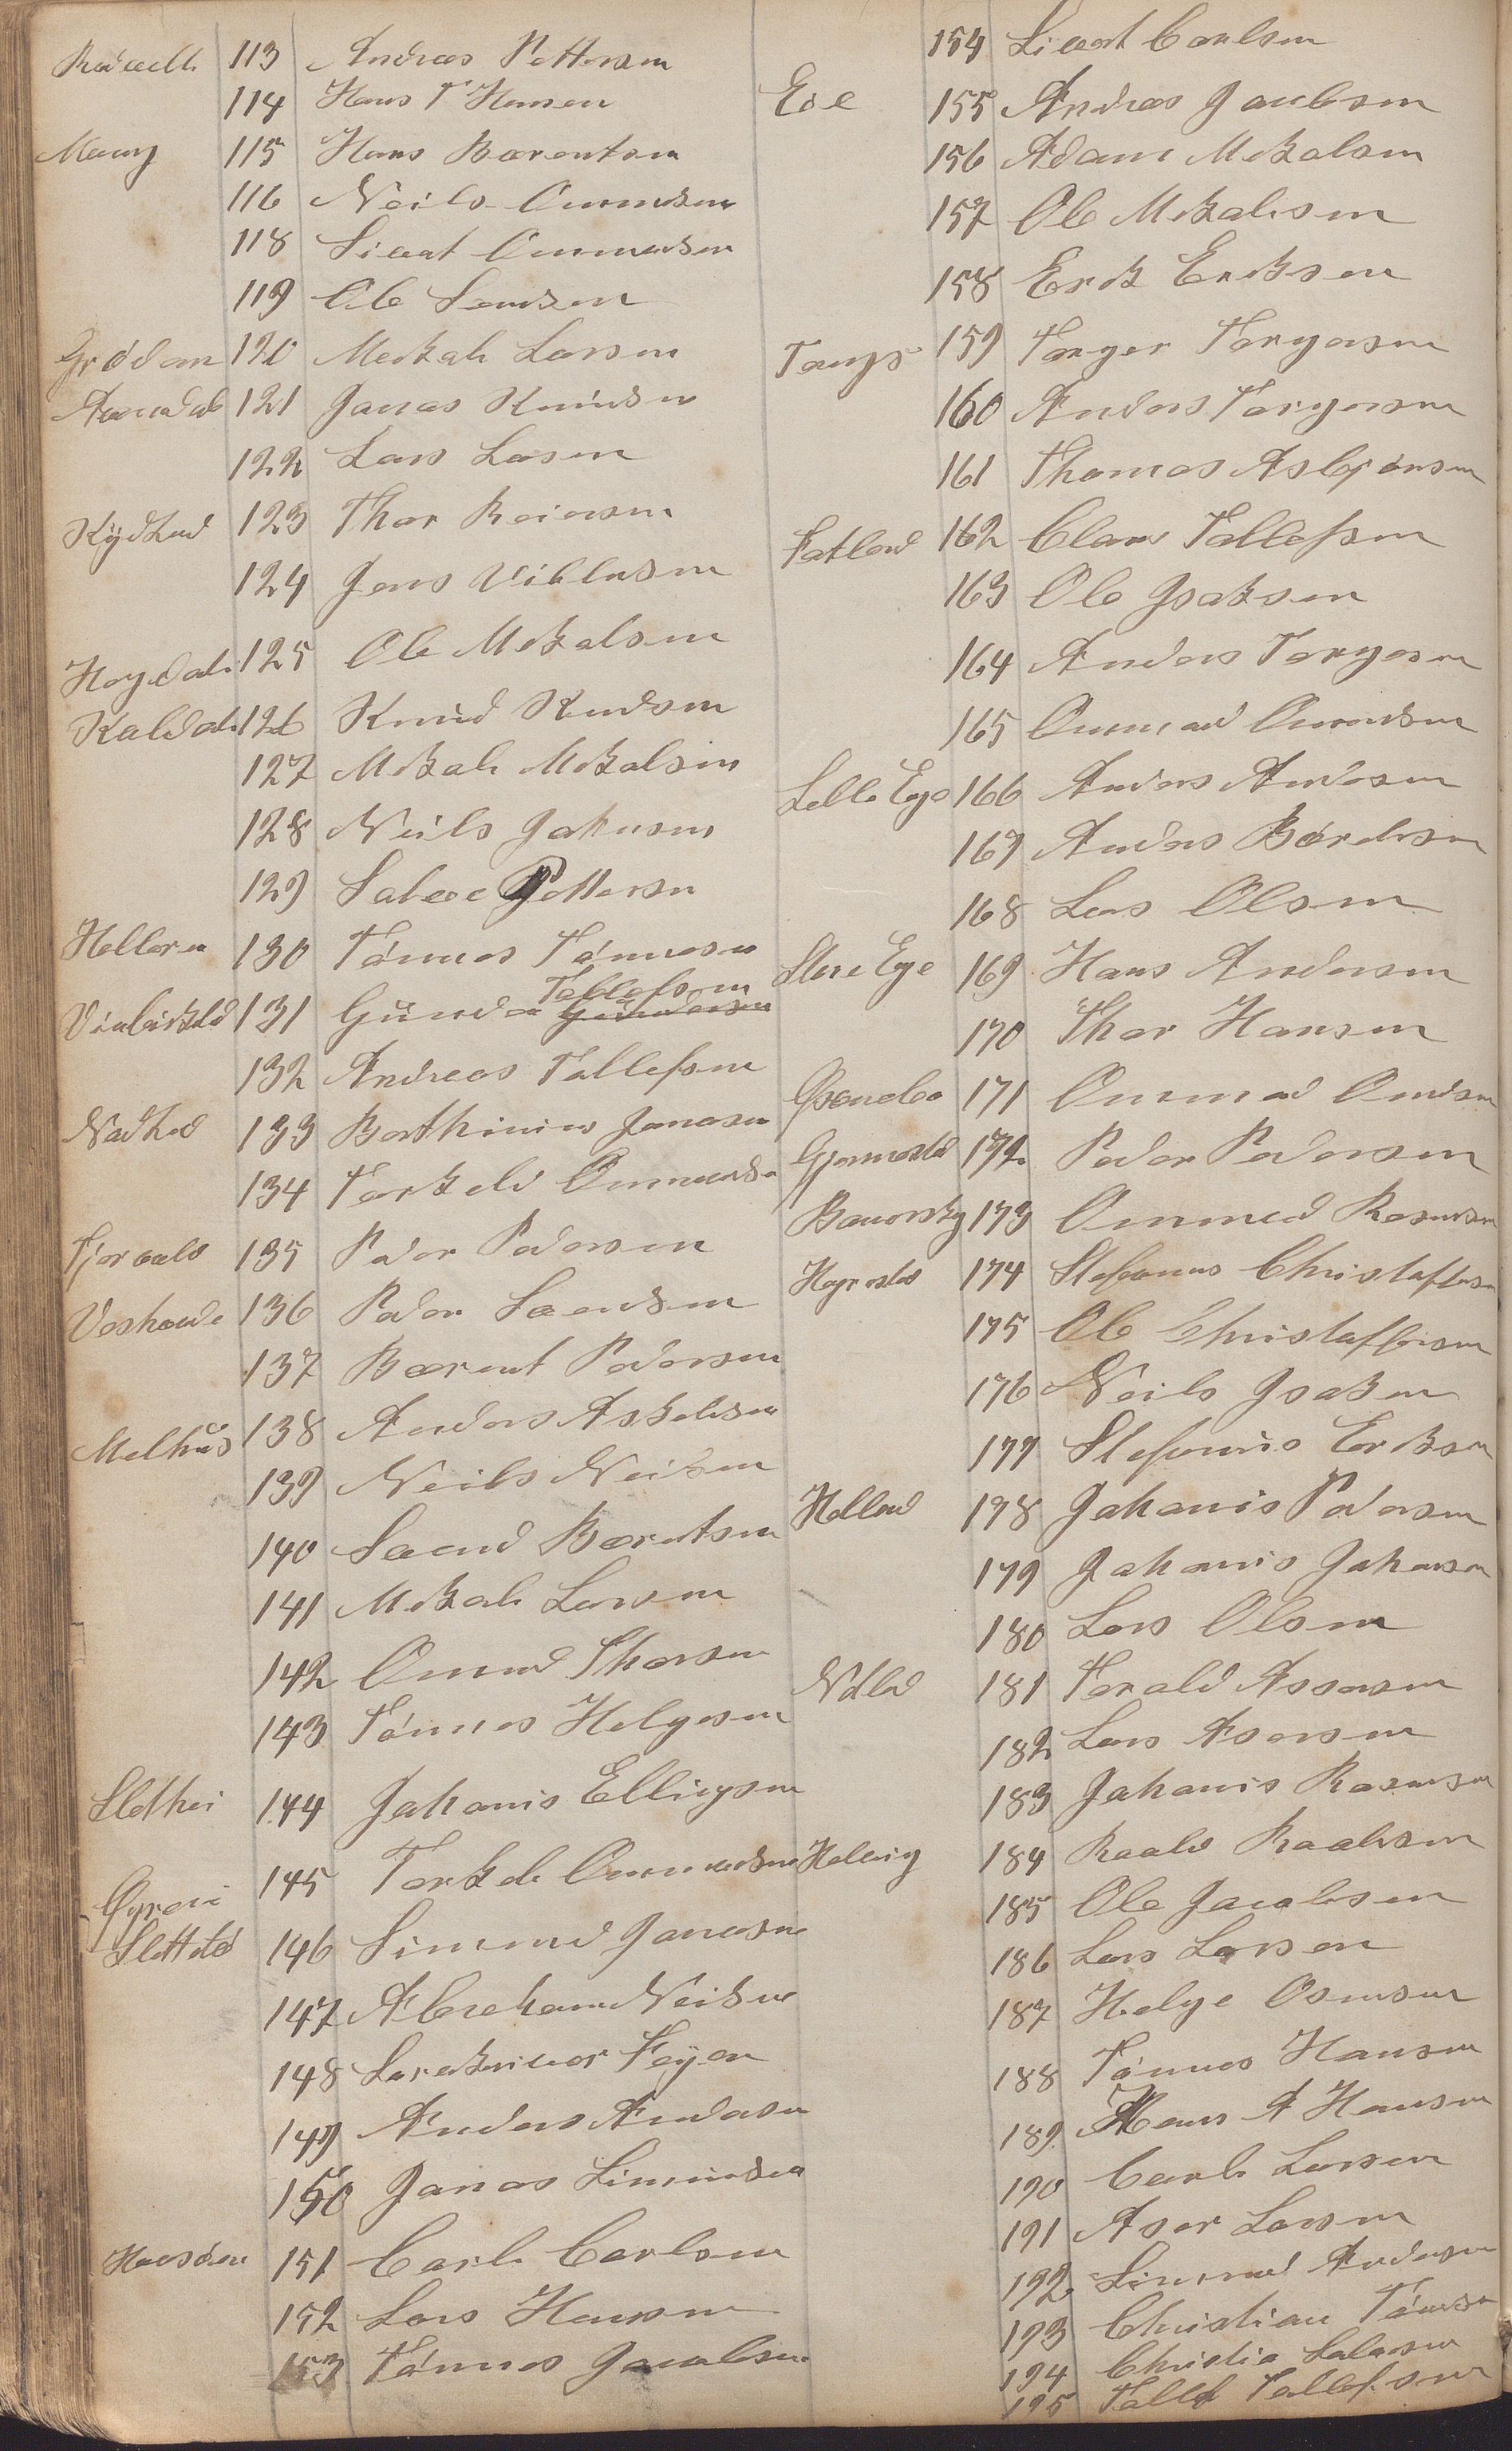 113 Andreas Pettersen
114 Hans T Hansen
115 Hans Barentsen
116 Neils Ommedsen
118 Sivert Ommundsen
119 Ole Svendsen
Grødem 120 Mickale Larsen
121 Jonas Knudsen
122 Lars Larsen
123 Thor Reiersen
124 Jens Villumsen
Høydal 125 Ole Mikalsen
Kaldal 126 Knud Knudsen
127 Mikale Mikalsen
128 Neils
129 Salve Pettersen
Helleren 130 Tønnes Tønnesen
131 Gunder Gundersen Tollefsen
132 Andreas Tollefsen
133 Jonasen
134 Torkeld Ommundsen
135 Peder Pedersen
136 Peder Svendsen
137 Barent Pedersen
Melhus 138 Anders Askelsen
139 Neils Neilsen
140 Svend Barentsen
141 Mikale Larsen
142 Omund Thorsen
143 Tønnes Helgesen
Slethei 144 Johanis Ellingsen
145 Torkele Ommundsen
146 Simund Jonasen
147 Abraham Neilsen
148 Feyer
149 Anders Andersen
150 Jonas Simundsen
151 Carle Carlsen
152 Lars Hansen
153 Tønnes Jacobsen
154 Sivert Carlsen
Eie 155 Andreas Jacobsen
156 Adam Mikalsen
157 Ole Mikalesen
158 Erik Eriksen
159 Torger Torgersen
160 Anders Torgersen
161 Thomas Asbjørnsen
Fatland 162 Claus Tollefsen
163 Ole Isaksen
164 Anders Torgersen
165 Ommund Ommundsen
Lille Ege 166 Anders Andersen
167 Anders Bordersen
168 Lars Olsen
Store Ege 169 Hans Andersen
170 Thor Hansen
171 Ommund Omdsen
172 Peder Pedersen
173 Ommund Rasmusen
174 Stefanus Christoffersen
175 Ole Christoffersen
176 Neils Isaksen
177 Stefanus Eriksen
178 Johanis Pedersen
179 Johanis Johansen
180 Lars Olsen
181 Torald Assersen
182 Lars Asersen
183 Johanis Rasmusen
184
185 Ole Jacobsen
186 Lars Larsen
187 Helge Osmsen
188 Tønnes Hansen
189 Hans A Hansen
190 Carle Larsen
191 Aser Larsen
192 Simund Andersen
193 Christian Tønnesen
194 Salvesen
195 Tollef Tollefsen